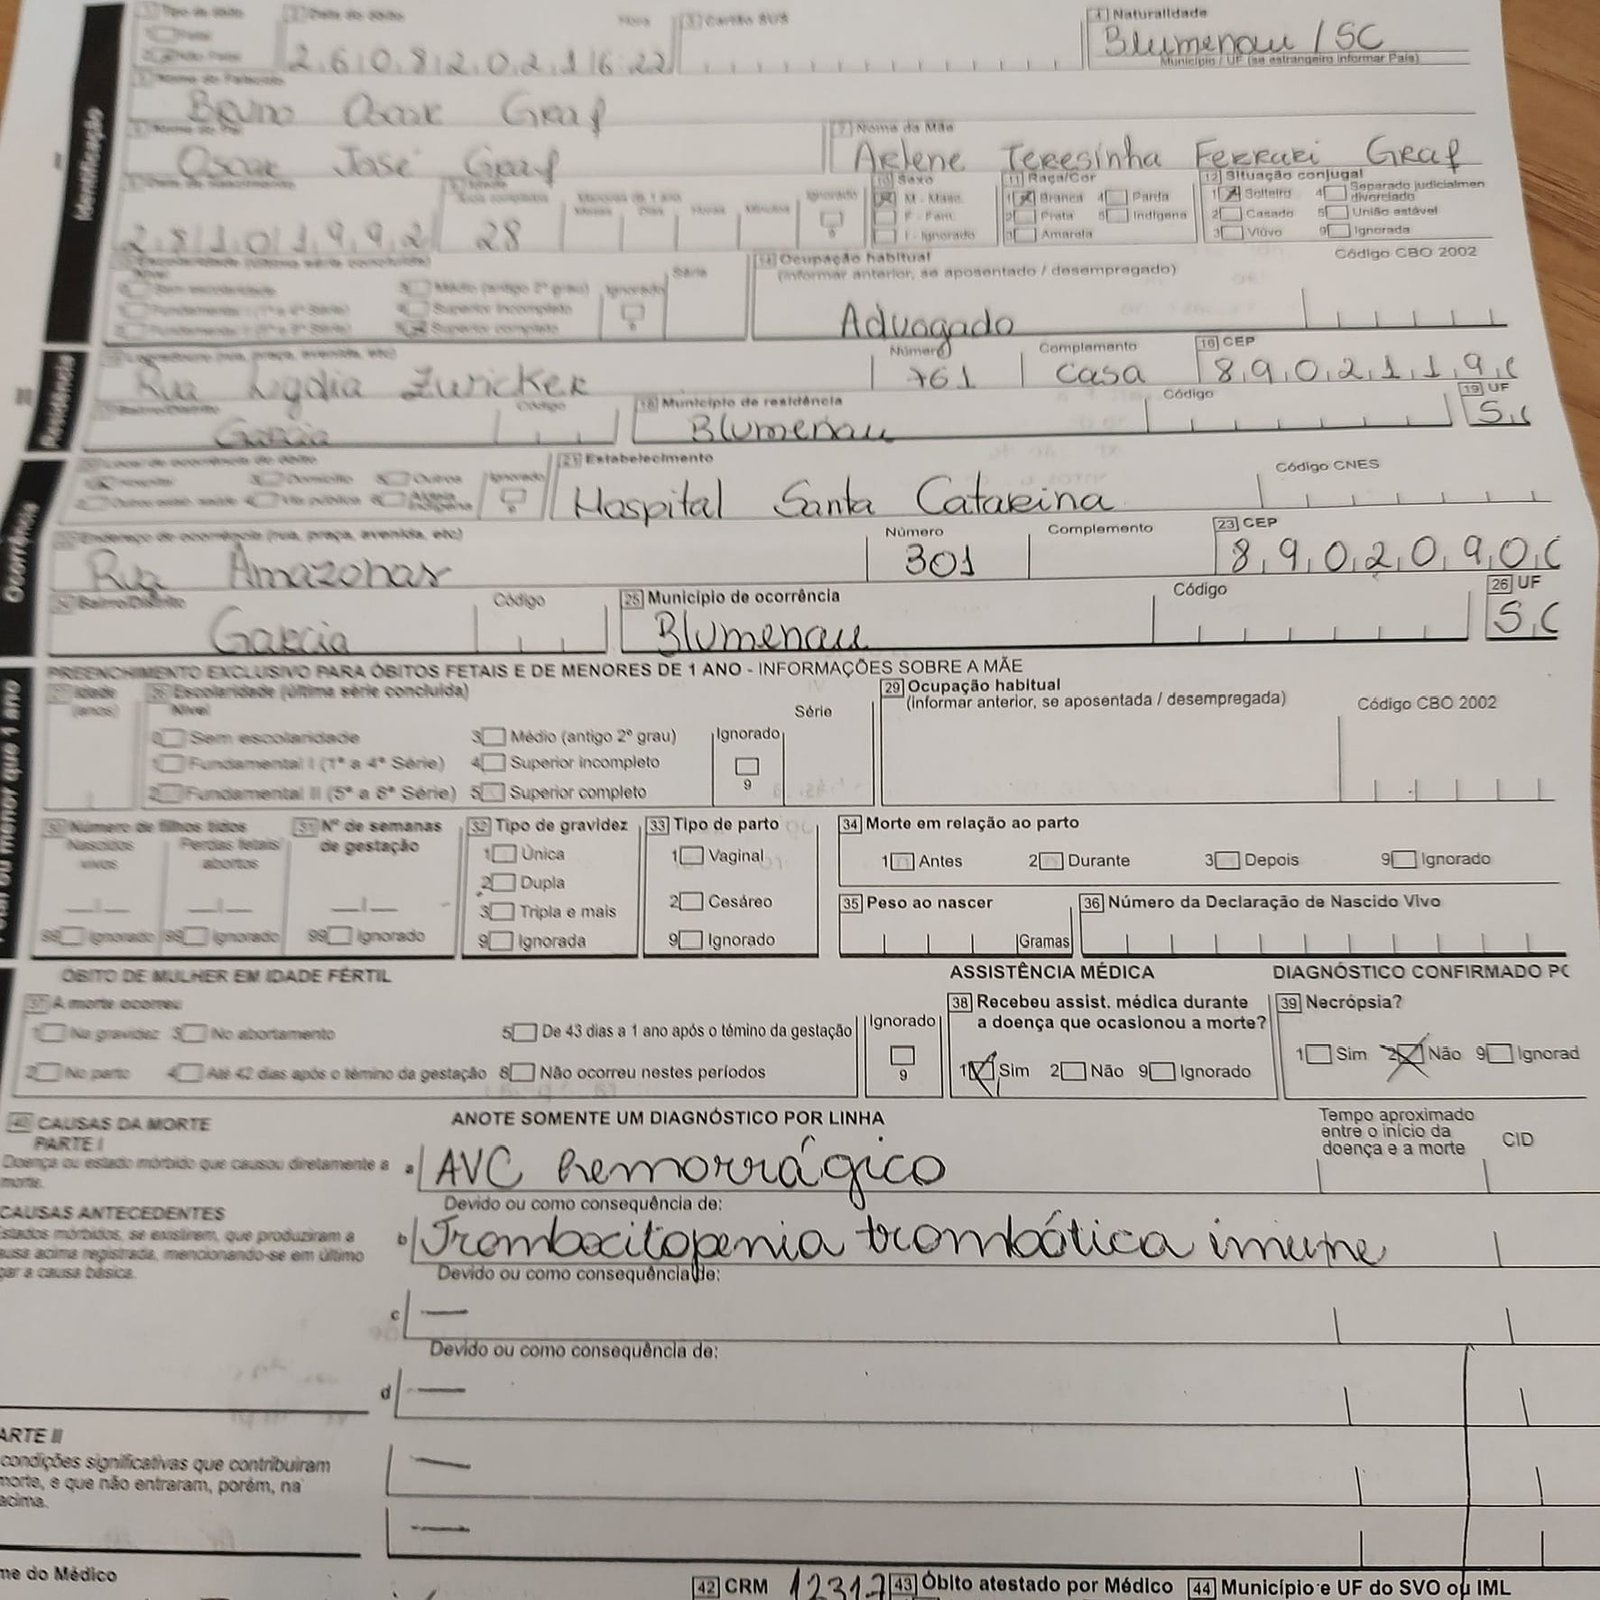 1 Tipo de óbito 2 Data do óbito Hora 3 Cartão SUS 4 Naturalidade
26 08 2021 16:22 Blumenau / SC
Município / UF (se estrangeiro informar País)
Bruno Oscar Graf
7 Nome da Mãe
Oscar José Graf Arlene Teresinha Ferrari Graf
10 Sexo 11 Raça/Cor 12 Situação conjugal
Ignorado M - Masc. 1 Branca 4 Parda 1 Solteiro 4 Separado judicialmen divorciado
F - Fem. 2 Preta 5 Indígena 2 Casado 5 União estável
28101992 28 9 I - Ignorado 3 Amarela 3 Viúvo 9 Ignorada
Escolaridade (última série concluída) 14 Ocupação habitual Código CBO 2002
Nível Série (informar anterior, se aposentado / desempregado)
Sem escolaridade Médio (antigo 2º grau) Ignorado
Superior incompleto 9
Superior completo Advogado
Logradouro (rua, praça, avenida, etc) Número Complemento 16 CEP
Rua Lydia Zuricker 761 casa 8902119
Bairro/Distrito Código 18 Município de residência Código 19 UF
Garcia Blumenau SC
Local de ocorrência do óbito 21 Estabelecimento Código CNES
Hospital 3 Domicílio 5 Outros Ignorado
Outros estab. saúde 4 Via pública 6 Aldeia Indígena 9 Hospital Santa Catarina
Endereço de ocorrência (rua, praça, avenida, etc) Número Complemento 23 CEP
Rua Amazonas 301 8902090
Bairro/Distrito Código 25 Município de ocorrência Código 26 UF
Garcia Blumenau SC
PREENCHIMENTO EXCLUSIVO PARA ÓBITOS FETAIS E DE MENORES DE 1 ANO - INFORMAÇÕES SOBRE A MÃE
27 Idade 28 Escolaridade (última série concluída) 29 Ocupação habitual
(anos) Nível Série (informar anterior, se aposentada / desempregada) Código CBO 2002
0 Sem escolaridade 3 Médio (antigo 2º grau) Ignorado
1 Fundamental I (1ª a 4ª Série) 4 Superior incompleto
2 Fundamental II (5ª a 8ª Série) 5 Superior completo 9
30 Número de filhos tidos 31 Nº de semanas de gestação 32 Tipo de gravidez 33 Tipo de parto 34 Morte em relação ao parto
Nascidos vivos Perdas fetais/ abortos 1 Única 1 Vaginal 1 Antes 2 Durante 3 Depois 9 Ignorado
2 Dupla
3 Tripla e mais 2 Cesáreo 35 Peso ao nascer 36 Número da Declaração de Nascido Vivo
99 Ignorado 99 Ignorado 99 Ignorado 9 Ignorada 9 Ignorado Gramas
ÓBITO DE MULHER EM IDADE FÉRTIL ASSISTÊNCIA MÉDICA DIAGNÓSTICO CONFIRMADO PO
37 A morte ocorreu 38 Recebeu assist. médica durante a doença que ocasionou a morte? 39 Necrópsia?
1 Na gravidez 3 No abortamento 5 De 43 dias a 1 ano após o témino da gestação Ignorado 1 Sim 2 Não 9 Ignorad
2 No parto 4 Até 42 dias após o témino da gestação 8 Não ocorreu nestes períodos 9 1 Sim 2 Não 9 Ignorado
40 CAUSAS DA MORTE ANOTE SOMENTE UM DIAGNÓSTICO POR LINHA Tempo aproximado entre o início da doença e a morte CID
PARTE I
Doença ou estado mórbido que causou diretamente a morte. a AVC hemorrágico
Devido ou como consequência de:
CAUSAS ANTECEDENTES
Estados mórbidos, se existirem, que produziram a b Trombocitopenia trombótica imune
ausa acima registrada, mencionando-se em último
gar a causa básica. Devido ou como consequência de:
c —
Devido ou como consequência de:
d —
ARTE II
condições significativas que contribuiram —
morte, e que não entraram, porém, na
acima.
—
me do Médico 42 CRM 12317 43 Óbito atestado por Médico 44 Município e UF do SVO ou IML
Identificação
Residência
Ocorrência
ou menor que 1 ano